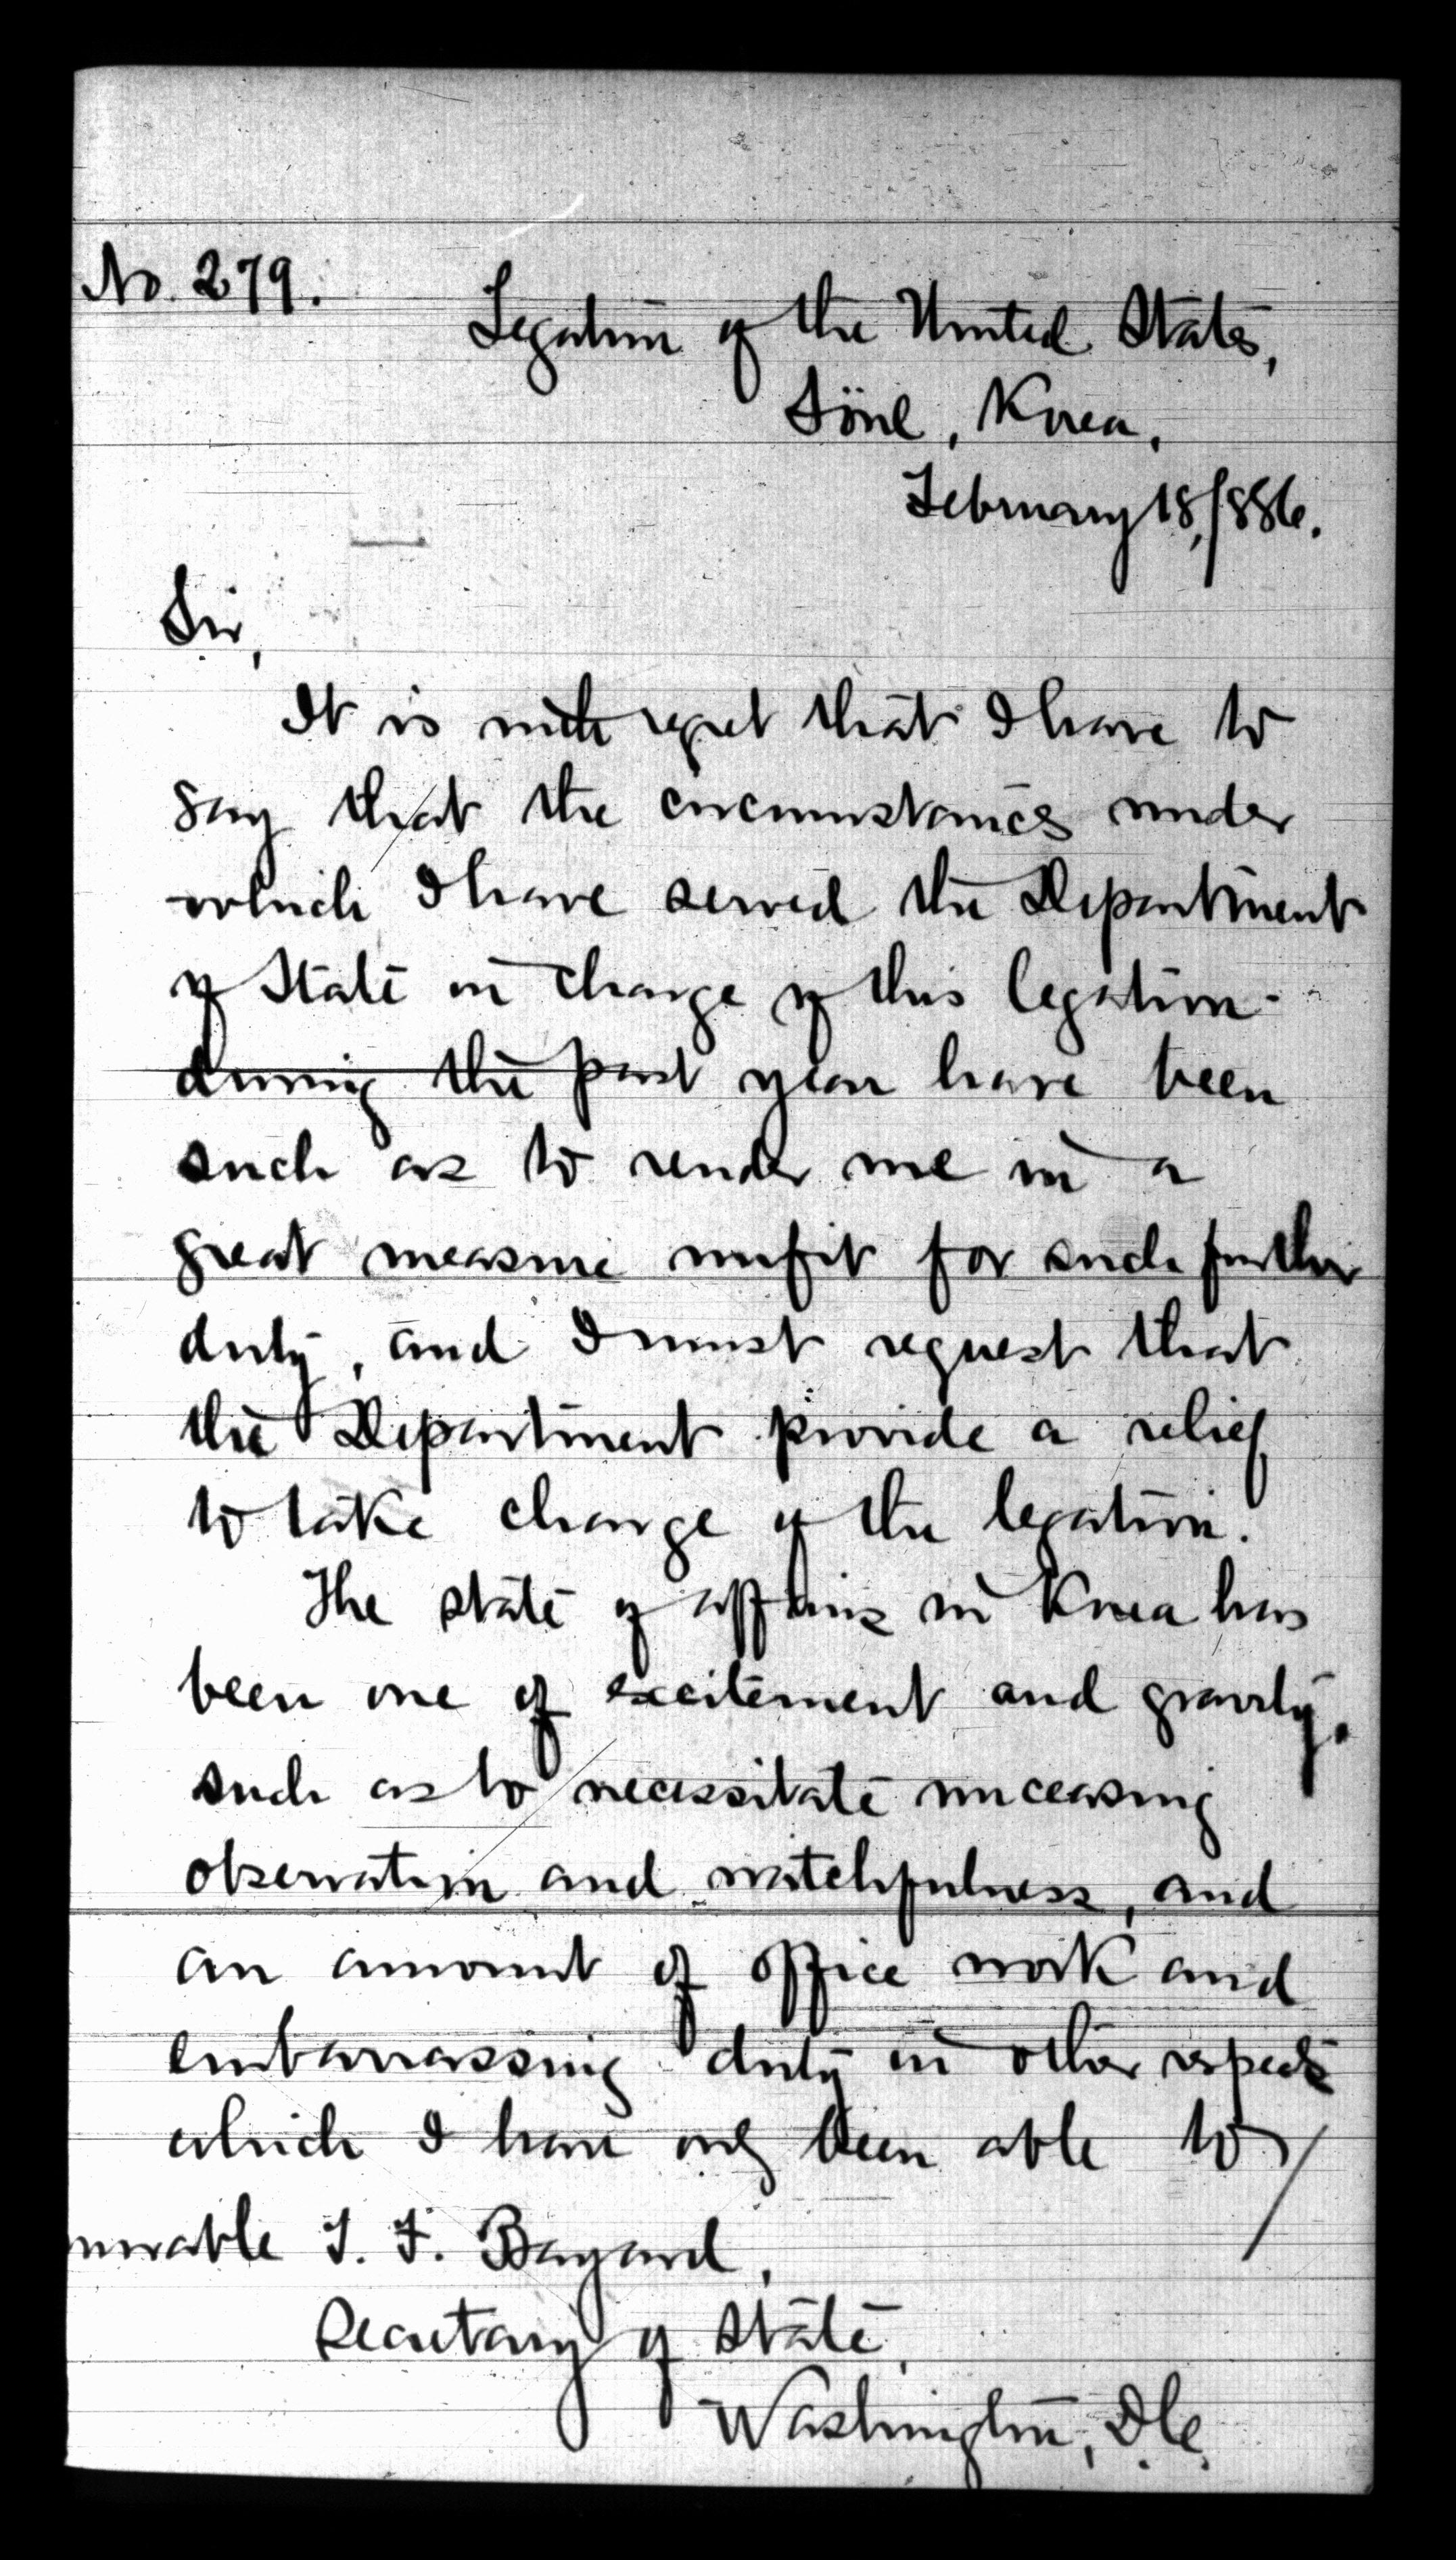 No. 279.
Legation of the United States,
Söul, Korea,
February 18, 1886.
Sir,
It is with regret that I have to
say that the circumstances under
which I have served the Department
of State in charge of this legation
during the past year have been
such as to render me in a
great measure unfit for such further
duty, and I must request that
the Department provide a relief
to take charge of the legation.
The state of affairs in Korea has
been one of excitement and gravity,
such as to necessitate unceasing
observation and watchfulness, and
an amount of office work and
embarrassing duty in other respects
which I have only been able to
norable T. F. Bayard,
Secretary of State,
Washington, D.C.